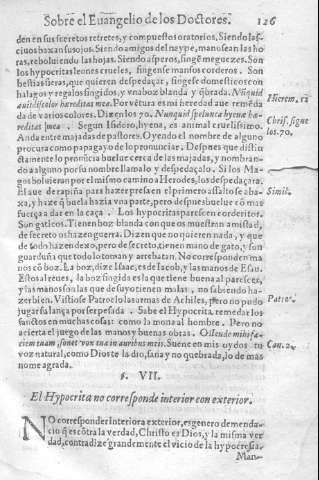 Sobre el Euangelio de los Doctores. 126
den en sus secretos retretes, y compuestos oratorios, Siendo las-
ciuos baxan sus ojos. Siendo amigos del naype, manosean las ho
ras, reboluiendo las hojas. Siendo asperos, fingẽ meguezes. Son
los hypocritas leones crueles, fingense mansos corderos. Son
bestias fieras, que quieren despedaçar, fingese domesticos con
halagos y regalos fingidos, y vna boz blanda y q̃brada. Nunquid
auis discolor hæreditas mea. Por vẽtura es mi heredad aue remẽda
da de varios colores. Dizen los 70. Nunquid spelunca hyenæ hæ-
reditas mea. Segun Isidoro, hyena, es animal crudelissimo.
Anda entre majadas de pastores. Oyendo el nombre de alguno
procura como papagayo de lo pronunciar. Despues que distin
ctamente lo pronũcia buelue cerca de las majadas, y nombran-
do a alguno por su nombre llamalo y despedaçalo. Si los Ma-
gos boluieran por el mismo camino a Herodes, los despedaçara.
El aue de rapiña para hazer presa en el primero assalto se aba-
xa, y haze q̃ buela hazia vna parte, pero despues buelue cõ mas
fuerça a dar en la caça. Los hypocritas parescen corderitos.
Son gaticos. Tienen boz blanda con que os muestran amistad,
de secreto os hazen guerra. Dizen que no quieren nada, y que
de todo hazen dexo, pero de secreto, tienen mano de gato, y son
garduñas que todo lo toman y arrebatan. No corresponden ma
nos cõ boz. La boz, dize Isaac, es de Iacob, y las manos de Esau.
Esto al reues, la boz fingida es la que tiene buena al parescer,
y las manos son las que de suyo tienen malas, no sabiendo ha-
zer bien. Vistiose Patroclo las armas de Achiles, pero no pudo
jugar su lança por ser pesada. Sabe el Hypocrita, remedar los
sanctos en muchas cosas: como la mona al hombre. Pero no
acierta el juego de las manos y buenas obras. Ostende mihi fa-
ciem tuam, sonet vox tua in auribus meis. Suene en mis oydos tu
voz natural, como Dios te la dio, sana y no quebrada, lo de mas
no me agrada.
Hierem. 12
Chris. sigue
los. 70.
Simil.
Patro.
Can. 2.
§. VII.
El Hypocrita no corresponde interior con exterior.
NO corresponder interior a exterior, es genero de menda-
cio q̃ es cõtra la verdad, Christo es Dios, y la misma ver
dad, contradize grandemente el vicio de la hypocresia.
Man-